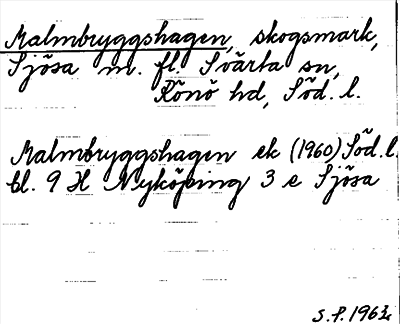 Malmbryggshagen, skogsmark,
Sjösa m. fl. Svärta sn,
Rönö hd, Söd. l.
Malmbryggshagen ek (1960) Söd. l.
bl. 9 H Nyköping 3 e Sjösa
S.P. 1963